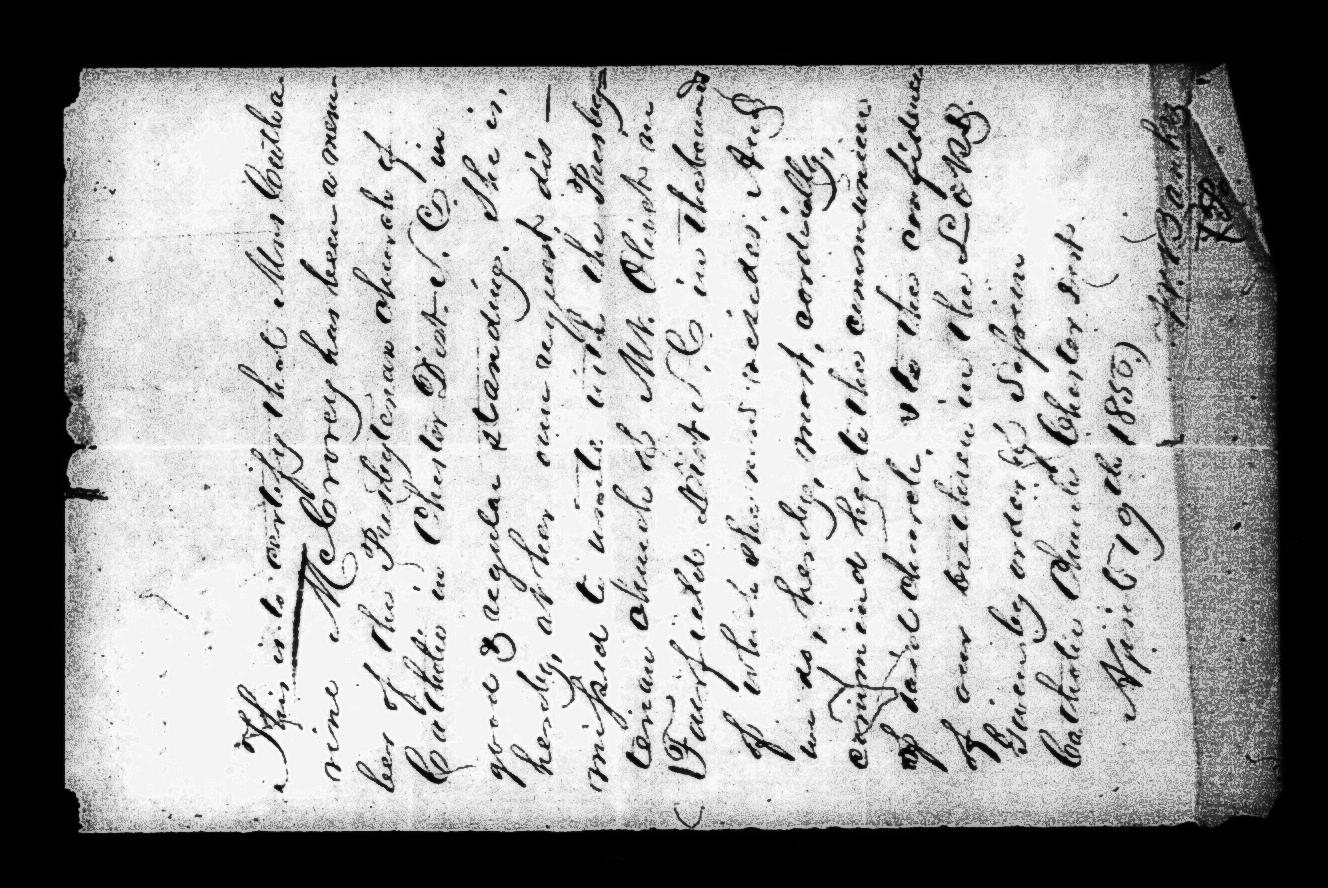 This is to certify that Miss Catha
rine McCrorey has been a mem
ber of the Presbyterian church of
Catholic in Chester Dist. S. C. in
good & regular standing. She is,
hereby, at her own request, dis —
missed to unite with the Presby
terian church of Mt. Olivet in
Fairfield Dist S. C in the bounds
of which she now resides; And
we do, hereby, most, cordially,
commend her to the communion
of said church, & to the confidence
of our brethren in the LORD.
Given by order of Session
Catholic Church Chester Dist.
April 19th 1850)
W. Banks